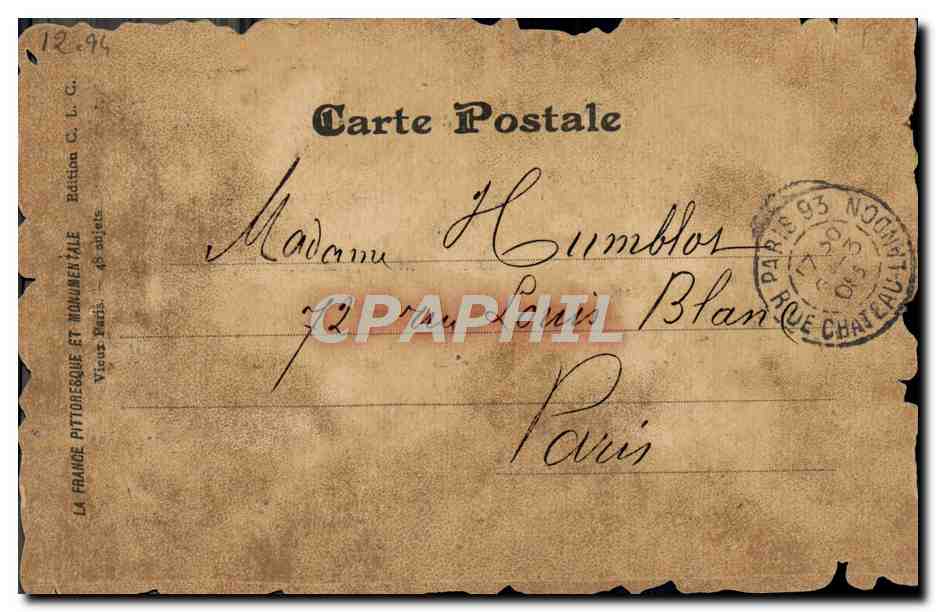 12.94
LA FRANCE PITTORESQUE ET MONUMENTALE Edition C. L. C.
Vieux Paris. — 48 sujets
Carte Postale
CPAPHIL
Madame Humblot
72 rue Louis Blanc
Paris
PARIS 93
RUE CHATEAU-LANDON